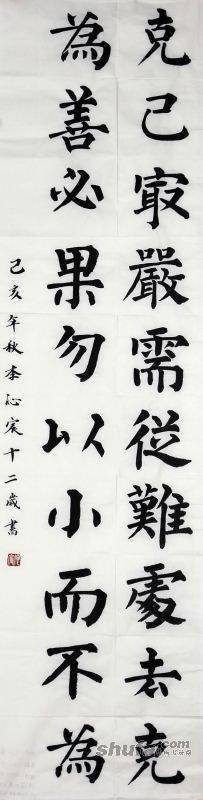 克己㝡嚴需從難處去克
為善必果勿以小而不為
己亥年秋李沁宸十二歲書